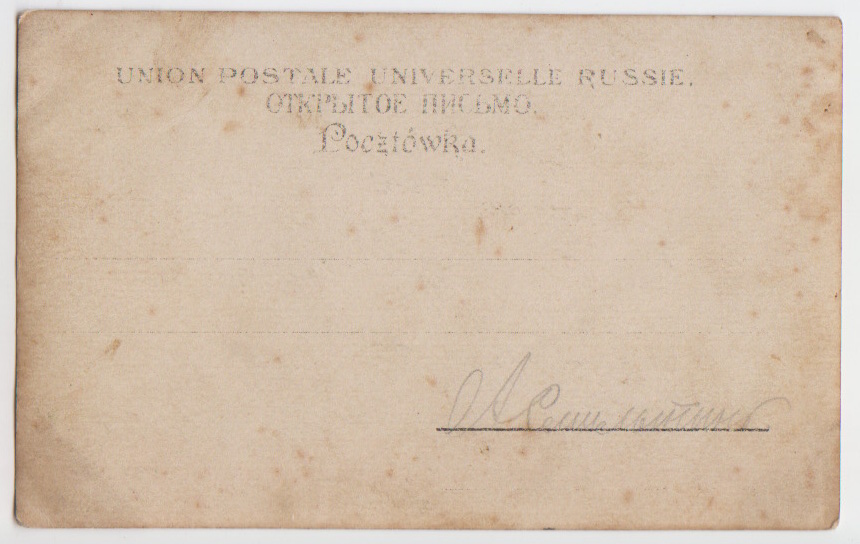 UNION POSTALE UNIVERSELLE RUSSIE.
ОТКРЫТОЕ ПИСЬМО.
Pocztówka.